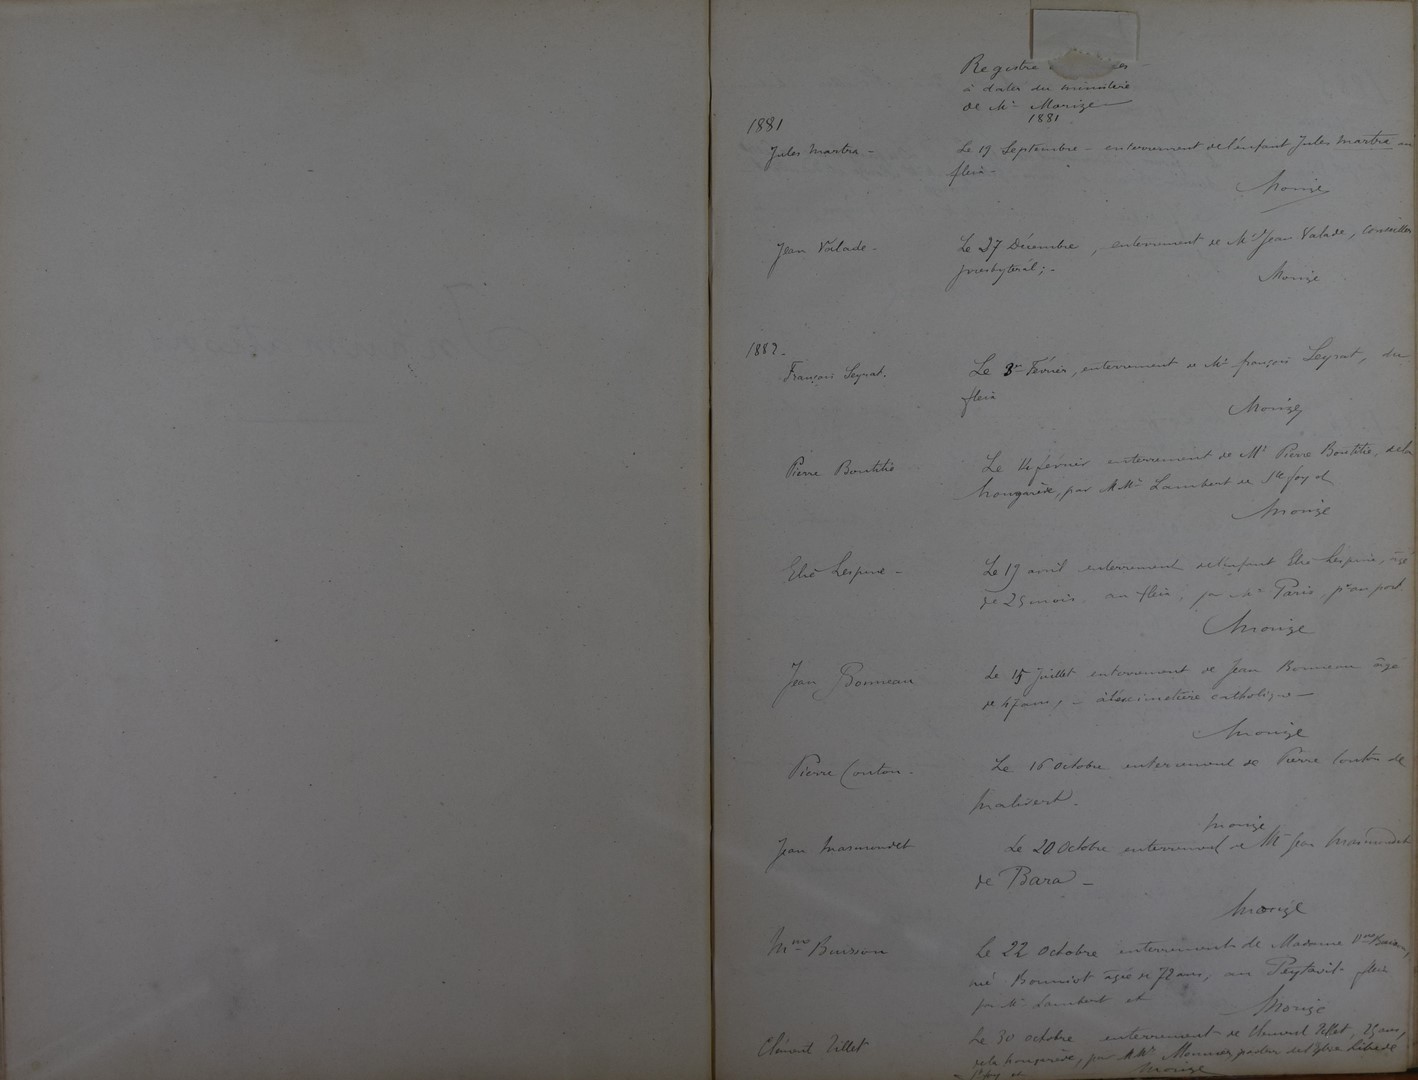 Registre
à dater du ministère
de Mr Morize
1881
1881
Jules Martra - Le 19 Septembre - enterrement de l'enfant Jules Martra au
fleix -
Morize
Jean Valade - Le 27 Décembre, enterrement de Mr Jean Valade, conseiller
presbytéral; -
Morize
1882.
François Seyrat. Le 3 Février, enterrement de Mr françois Seyrat, du
fleix
Morize
Pierre Boutitie Le 14 février enterrement de Mr Pierre Boutitie, de la
hongarède, par MMrs Lambert de Ste foy et
Morize
Le 19 avril enterrement de l'enfant âgé
de 25 mois au fleix, par Mr Paris,
Morize
Jean Bonneau Le 15 Juillet enterrement de Jean Bonneau âgé
de 47 ans, - cimetière catholique -
Morize
Pierre Couton. Le 16 octobre enterrement de Pierre Couton de
Malivert.
Morize
Jean Le 20 octobre enterrement de Mr Jean
de Bara -
Morize
Mme Buisson Le 22 octobre enterrement de Madame Buisson,
née âgée de 72 ans, au fleix
par Mr Lambert et Morize
Clément Tillet Le 30 octobre enterrement de Clément Tillet, ans,
de la hongarède, par MMrs pasteur de l'Eglise libre de
Ste foy et Morize